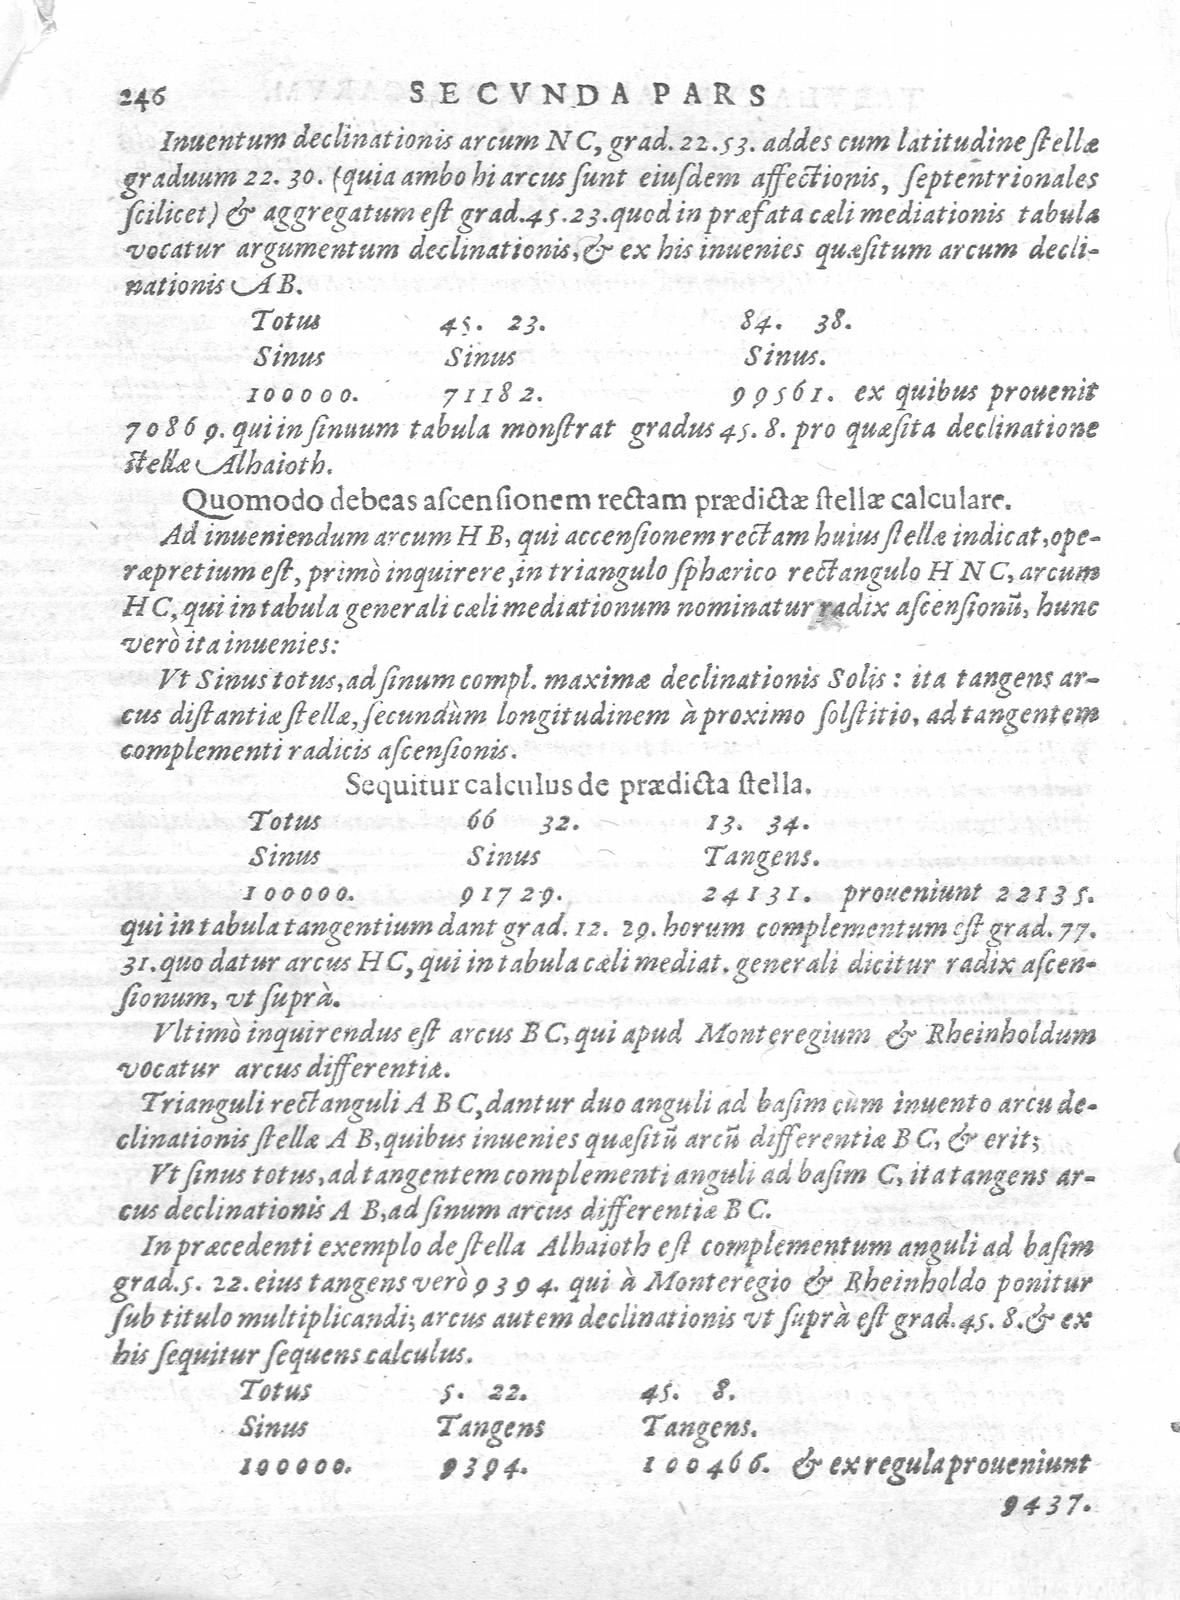 246 SECVNDA PARS
Inuentum declinationis arcum N C, grad. 22. 53. addes cum latitudine ſtellæ
graduum 22. 30. (quia ambo hi arcus ſunt eiuſdem affectionis, ſeptentrionales
ſcilicet) & aggregatum eſt grad. 45. 23. quod in præfata cæli mediationis tabula
vocatur argumentum declinationis, & ex his inuenies quæſitum arcum decli-
nationis A B.
Totus 45. 23. 84. 38.
Sinus Sinus Sinus.
100000. 71182. 99561. ex quibus prouenit
70869. qui in ſinuum tabula monſtrat gradus 45. 8. pro quæſita declinatione
ſtellæ Alhaioth.
Quomodo debeas aſcenſionem rectam prædictæ ſtellæ calculare.
Ad inueniendum arcum H B, qui accenſionem rectam huius ſtellæ indicat, ope-
ræpretium eſt, primò inquirere, in triangulo ſphærico rectangulo H N C, arcum
H C, qui in tabula generali cæli mediationum nominatur radix aſcenſionū, hunc
verò ita inuenies:
Vt Sinus totus, ad ſinum compl. maximæ declinationis Solis: ita tangens ar-
cus diſtantiæ ſtellæ, ſecundùm longitudinem à proximo ſolſtitio, ad tangentem
complementi radicis aſcenſionis.
Sequitur calculus de prædicta ſtella.
Totus 66 32. 13. 34.
Sinus Sinus Tangens.
100000. 91729. 24131. proueniunt 22135.
qui in tabula tangentium dant grad. 12. 29. horum complementum eſt grad. 77.
31. quo datur arcus H C, qui in tabula cæli mediat. generali dicitur radix aſcen-
ſionum, vt ſuprà.
Vltimò inquirendus eſt arcus B C, qui apud Monteregium & Rheinholdum
vocatur arcus differentiæ.
Trianguli rectanguli A B C, dantur duo anguli ad baſim cum inuento arcu de-
clinationis ſtellæ A B, quibus inuenies quæſitū arcū differentiæ B C, & erit;
Vt ſinus totus, ad tangentem complementi anguli ad baſim C, ita tangens ar-
cus declinationis A B, ad ſinum arcus differentiæ B C.
In præcedenti exemplo de ſtella Alhaioth eſt complementum anguli ad baſim
grad. 5. 22. eius tangens verò 9394. qui à Monteregio & Rheinholdo ponitur
ſub titulo multiplicandi; arcus autem declinationis vt ſuprà eſt grad. 45. 8. & ex
his ſequitur ſequens calculus.
Totus 5. 22. 45. 8.
Sinus Tangens Tangens.
100000. 9394. 100466. & ex regula proueniunt
9437.